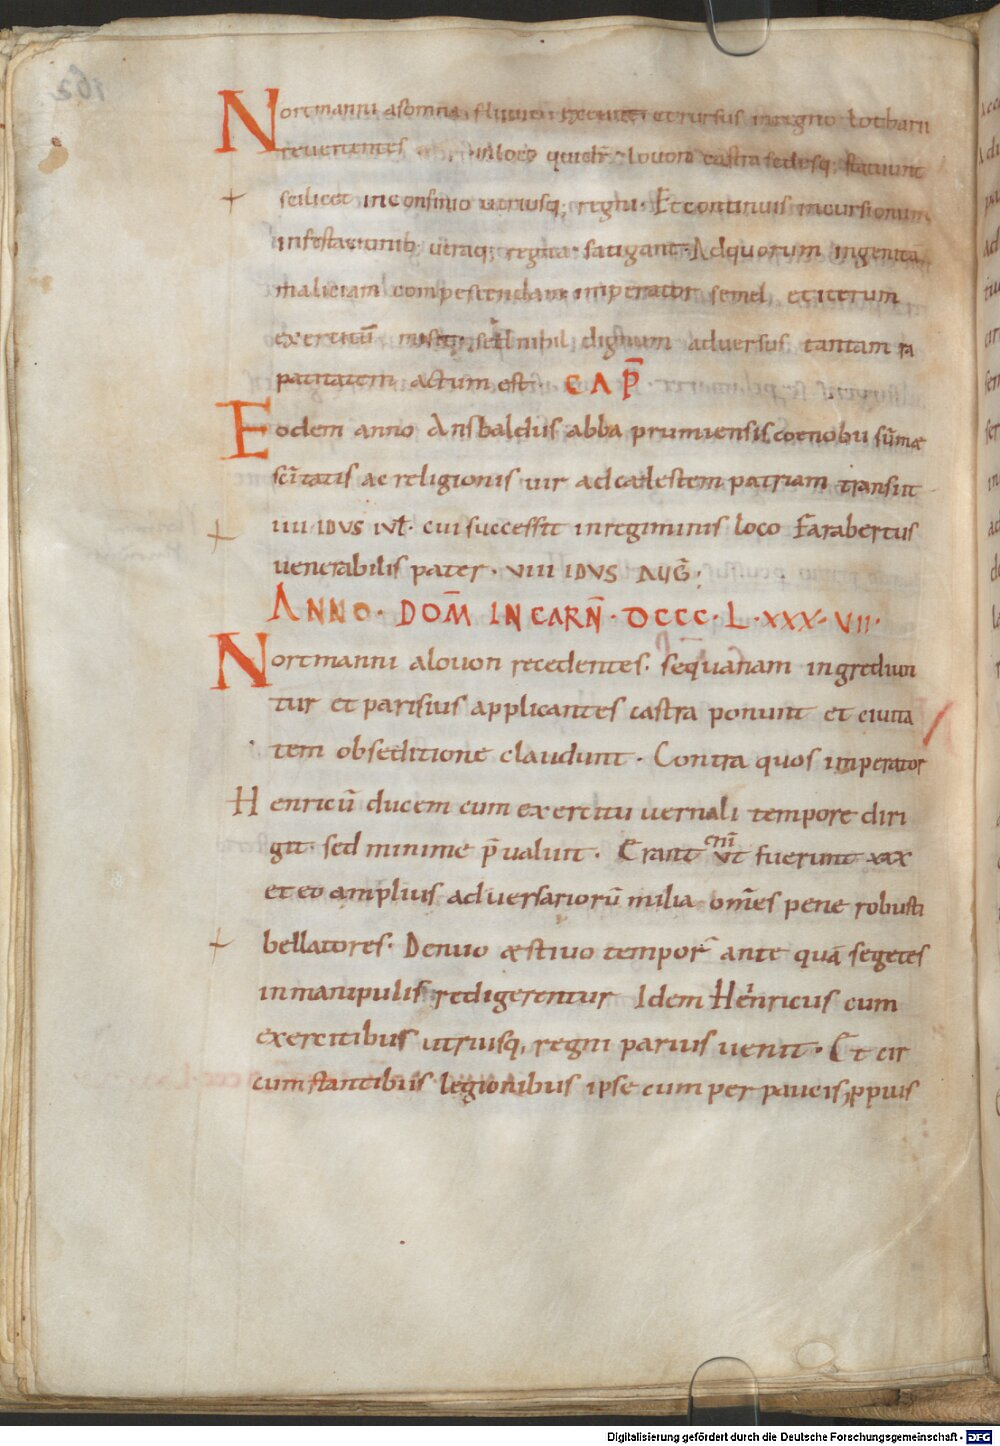 Nortmanni asomna fluuio exeunt et rursus in regno lotharii
reuertentes in loco qui dr̄ louon castra sedesq; statuunt
scilicet in confinio utriusq; regni · Et continuis incursionum
infestationib; utraq; regna fatigant · Ad quorum ingenitā
maliciam compescendam imperator semel et iterum
exercitū misit, sed nihil dignum aduersus tantam ra
patitatem actum est · CAP̄
Eodem anno Ansbaldus abba prumiensis coenobii sūmæ
scītatis ac religionis uir ad cælestem patriam transiit
IIII IDVS IVL̄ · cui successit in regiminis loco Farabertus
uenerabilis pater · VIII IDVS AUḠ ·
ANNO · DOM̄ INCARN̄ · DCCC · L · XXX · VII ·
Nortmanni a louon recedentes · sequanam ingrediun
tur et parisius applicantes castra ponunt et ciuita
tem obseditione claudunt · Contra quos imperator
Henricū ducem cum exercitu uernali tempore diri
git · sed minime p̄ualuit · Erant enī ut fuerunt xxx
et eo amplius aduersariorū milia om̄es pene robusti
bellatores · Denuo æstiuo tempor̄ ante quā segetes
in manipulis redigerentur Idem Henricus cum
exercitibus utriusq; regni parius uenit · Et cir
cumstantibus legionibus ipse cum per paucis, ppius
162
Digitalisierung gefördert durch die Deutsche Forschungsgemeinschaft - DFG